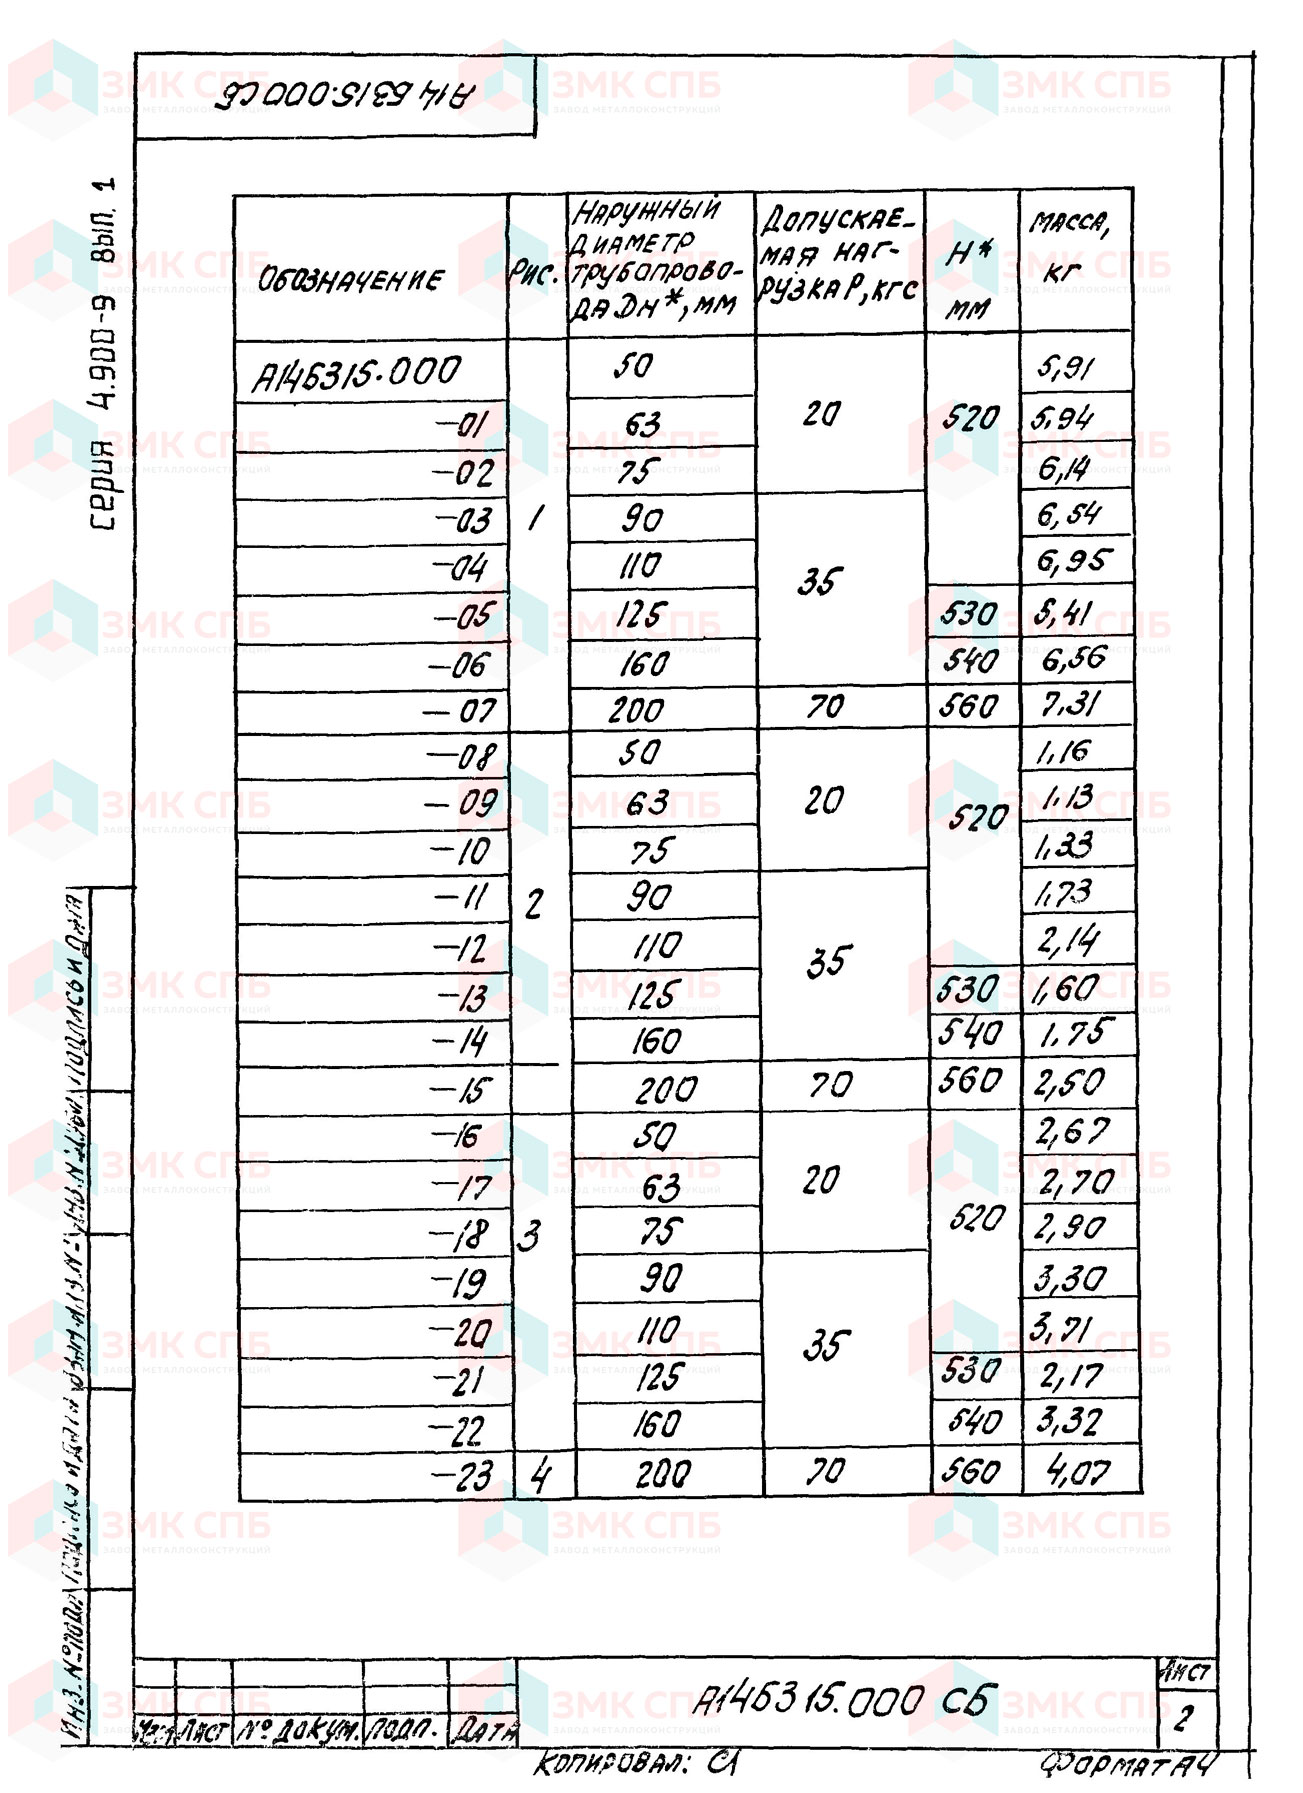 А14Б315.000 СБ
серия 4.900-9 вып. 1
Обозначение | Рис. | Наружный диаметр трубопрово- да Dн*, мм | Допускае- мая наг- рузка Р, кгс | Н* мм | Масса, кг
А14Б315.000 | 1 | 50 | 20 | 520 | 5,91
-01 | 63 | 5,94
-02 | 75 | 6,14
-03 | 90 | 35 | 6,54
-04 | 110 | 6,95
-05 | 125 | 530 | 5,41
-06 | 160 | 540 | 6,56
-07 | 200 | 70 | 560 | 7,31
-08 | 2 | 50 | 20 | 520 | 1,16
-09 | 63 | 1,13
-10 | 75 | 1,33
-11 | 90 | 35 | 1,73
-12 | 110 | 2,14
-13 | 125 | 530 | 1,60
-14 | 160 | 540 | 1,75
-15 | 200 | 70 | 560 | 2,50
-16 | 3 | 50 | 20 | 520 | 2,67
-17 | 63 | 2,70
-18 | 75 | 2,90
-19 | 90 | 35 | 3,30
-20 | 110 | 3,71
-21 | 125 | 530 | 2,17
-22 | 160 | 540 | 3,32
-23 | 4 | 200 | 70 | 560 | 4,07
Инв. № подл. Подпись и дата
Подпись и дата
Изм Лист № докум. Подп. Дата
А14Б315.000 СБ
Лист
2
Копировал:
Формат А4
ЗМК СПБ
ЗАВОД МЕТАЛЛОКОНСТРУКЦИЙ